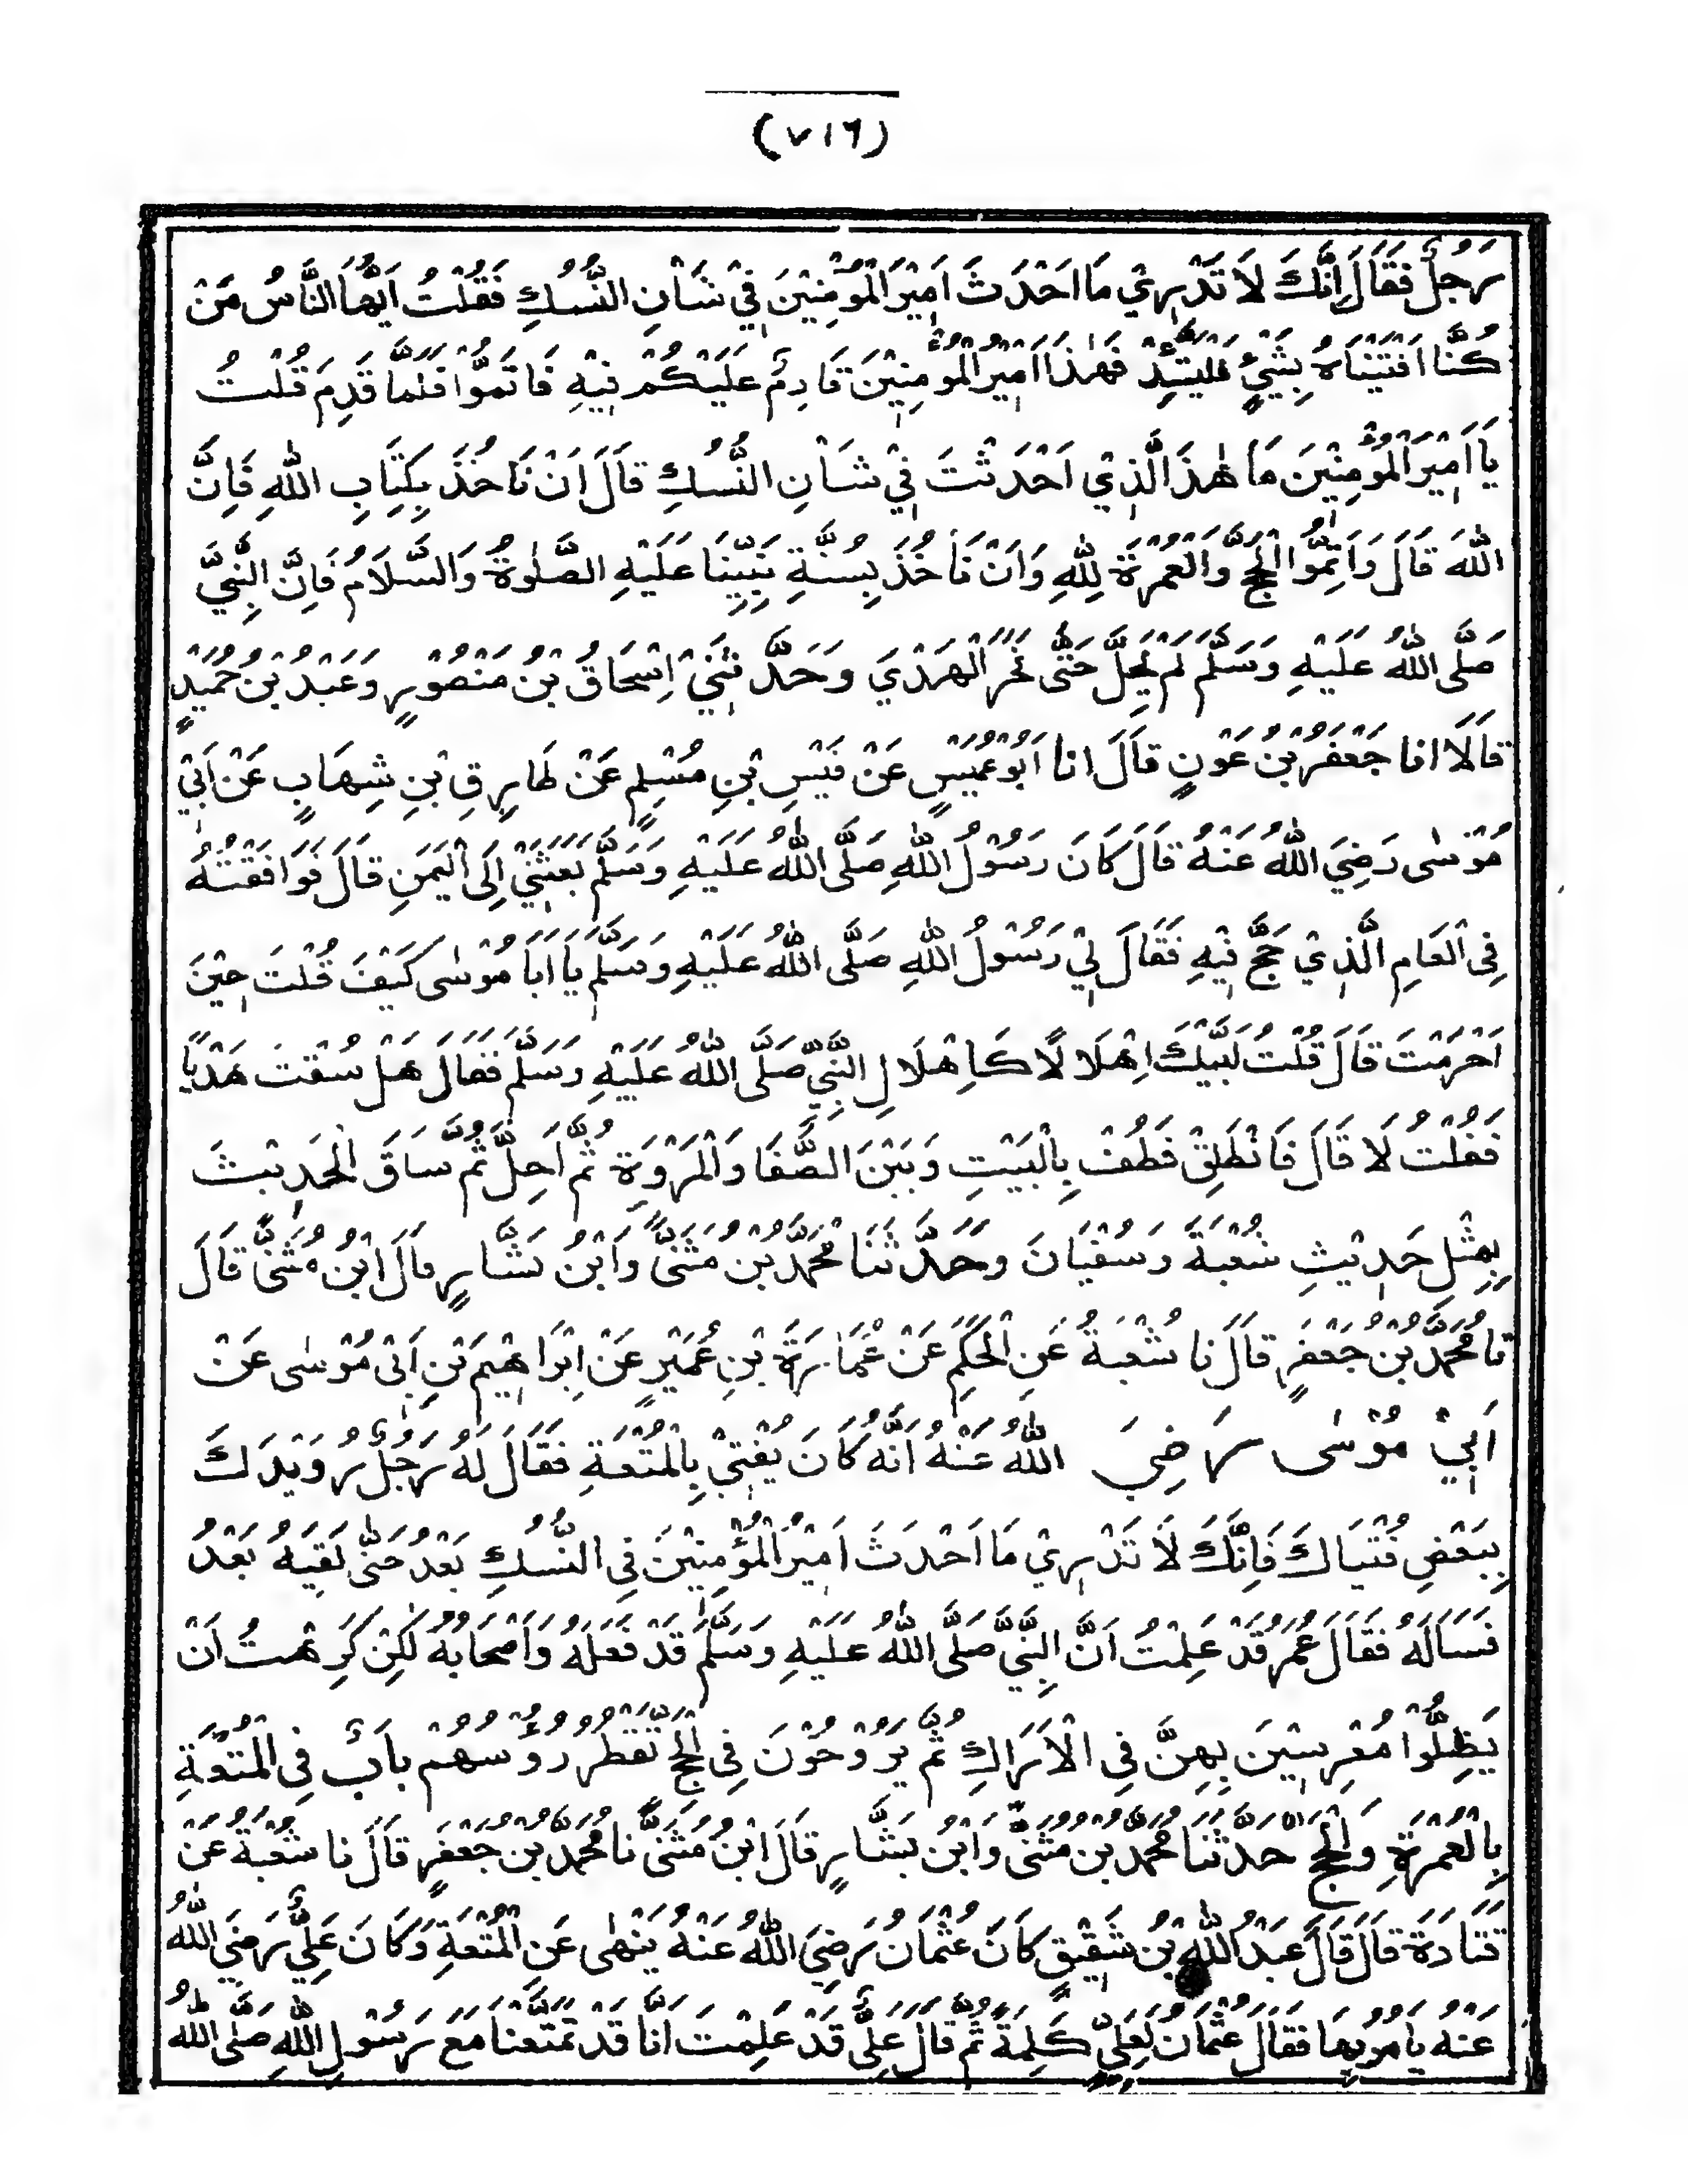 (٧١٦)
رَجُلٌ فَقَالَ إِنَّكَ لَا تَدْرِيْ مَا اَحْدَثَ اَمِيْرُ الْمُؤْمِنِيْنَ فِيْ شَاْنِ النُّسُكِ فَقُلْتُ اَيُّهَا النَّاسُ مَنْ
كُنَّا اَفْتَيْنَاهُ بِشَيْءٍ فَلْيَتَّئِدْ فَهٰذَا اَمِيْرُ الْمُؤْمِنِيْنَ قَادِمٌ عَلَيْكُمْ فَبِهِ فَاتَمُّوْا فَلَمَّا قَدِمَ قُلْتُ
يَا اَمِيْرَ الْمُؤْمِنِيْنَ مَا هٰذَا الَّذِيْ اَحْدَثْتَ فِيْ شَاْنِ النُّسُكِ قَالَ اَنْ نَاْخُذَ بِكِتَابِ اللّٰهِ فَاِنَّ
اللّٰهَ قَالَ وَاَتِمُّوا الْحَجَّ وَالْعُمْرَةَ لِلّٰهِ وَاَنْ نَاْخُذَ بِسُنَّةِ نَبِيِّنَا عَلَيْهِ الصَّلٰوةُ وَالسَّلَامُ فَاِنَّ النَّبِيَّ
صَلَّى اللّٰهُ عَلَيْهِ وَسَلَّمَ لَمْ يَحِلَّ حَتّٰى نَحَرَ الْهَدْيَ وَحَدَّثَنِيْ اِسْحَاقُ بْنُ مَنْصُوْرٍ وَعَبْدُ بْنُ حُمَيْدٍ
قَالَا انا جَعْفَرُ بْنُ عَوْنٍ قَالَ انا اَبُوْ عُمَيْسٍ عَنْ قَيْسِ بْنِ مُسْلِمٍ عَنْ طَارِقِ بْنِ شِهَابٍ عَنْ اَبِيْ
مُوْسٰى رَضِيَ اللّٰهُ عَنْهُ قَالَ كَانَ رَسُوْلُ اللّٰهِ صَلَّى اللّٰهُ عَلَيْهِ وَسَلَّمَ بَعَثَنِيْ اِلَى الْيَمَنِ قَالَ فَوَافَقْتُهُ
فِى الْعَامِ الَّذِيْ حَجَّ فِيْهِ فَقَالَ لِيْ رَسُوْلُ اللّٰهِ صَلَّى اللّٰهُ عَلَيْهِ وَسَلَّمَ يَا اَبَا مُوْسٰى كَيْفَ قُلْتَ حِيْنَ
اَحْرَمْتَ قَالَ قُلْتُ لَبَّيْكَ اِهْلَالًا كَاِهْلَالِ النَّبِيِّ صَلَّى اللّٰهُ عَلَيْهِ وَسَلَّمَ فَقَالَ هَلْ سُقْتَ هَدْيًا
فَقُلْتُ لَا قَالَ فَانْطَلِقْ فَطُفْ بِالْبَيْتِ وَبَيْنَ الصَّفَا وَالْمَرْوَةِ ثُمَّ اَحِلَّ ثُمَّ سَاقَ الْحَدِيْثَ
بِمِثْلِ حَدِيْثِ شُعْبَةَ وَسُفْيَانَ وَحَدَّثَنَا مُحَمَّدُ بْنُ مُثَنًّى وَابْنُ بَشَّارٍ قَالَ ابْنُ مُثَنًّى قَالَ
نا مُحَمَّدُ بْنُ جَعْفَرٍ قَالَ نا شُعْبَةُ عَنِ الْحَكَمِ عَنْ عُمَارَةَ بْنِ عُمَيْرٍ عَنْ اِبْرَاهِيْمَ بْنِ اَبِيْ مُوْسٰى عَنْ
اَبِيْ مُوْسٰى رَضِيَ اللّٰهُ عَنْهُ اَنَّهُ كَانَ يُفْتِيْ بِالْمُتْعَةِ فَقَالَ لَهُ رَجُلٌ رُوَيْدَكَ
بِبَعْضِ فُتْيَاكَ فَاِنَّكَ لَا تَدْرِيْ مَا اَحْدَثَ اَمِيْرُ الْمُؤْمِنِيْنَ فِى النُّسُكِ بَعْدُ حَتّٰى لَقِيَهُ بَعْدُ
فَسَاَلَهُ فَقَالَ عُمَرُ قَدْ عَلِمْتُ اَنَّ النَّبِيَّ صَلَّى اللّٰهُ عَلَيْهِ وَسَلَّمَ قَدْ فَعَلَهُ وَاَصْحَابُهُ لٰكِنْ كَرِهْتُ اَنْ
يَظِلُّوْا مُعْرِسِيْنَ بِهِنَّ فِى الْاَرَاكِ ثُمَّ يَرُوْحُوْنَ فِى الْحَجِّ تَقْطُرُ رُؤُسُهُمْ بَابٌ فِى الْمُتْعَةِ
بِالْعُمْرَةِ وَالْحَجِّ حَدَّثَنَا مُحَمَّدُ بْنُ مُثَنًّى وَابْنُ بَشَّارٍ قَالَ ابْنُ مُثَنًّى نَا مُحَمَّدُ بْنُ جَعْفَرٍ قَالَ نا شُعْبَةُ عَنْ
قَتَادَةَ قَالَ قَالَ عَبْدُ اللّٰهِ بْنُ شَقِيْقٍ كَانَ عُثْمَانُ رَضِيَ اللّٰهُ عَنْهُ يَنْهٰى عَنِ الْمُتْعَةِ وَكَانَ عَلِيٌّ رَضِيَ اللّٰهُ
عَنْهُ يَاْمُرُ بِهَا فَقَالَ عُثْمَانُ لِعَلِيٍّ كَلِمَةً ثُمَّ قَالَ عَلِيٌّ قَدْ عَلِمْتَ اَنَّا قَدْ تَمَتَّعْنَا مَعَ رَسُوْلِ اللّٰهِ صَلَّى اللّٰهُ